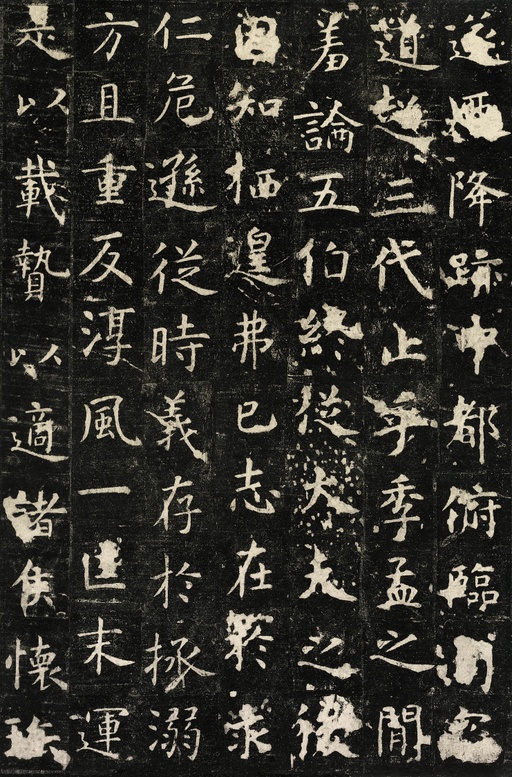 遂迺降跡中都俯臨司寇
道超三代止乎季孟之閒
羞論五伯終從大夫之後
固知栖遑弗已志在於求
仁危遜從時義存於拯溺
方且重反淳風一匡末運
是以載贄以適諸侯懷珍